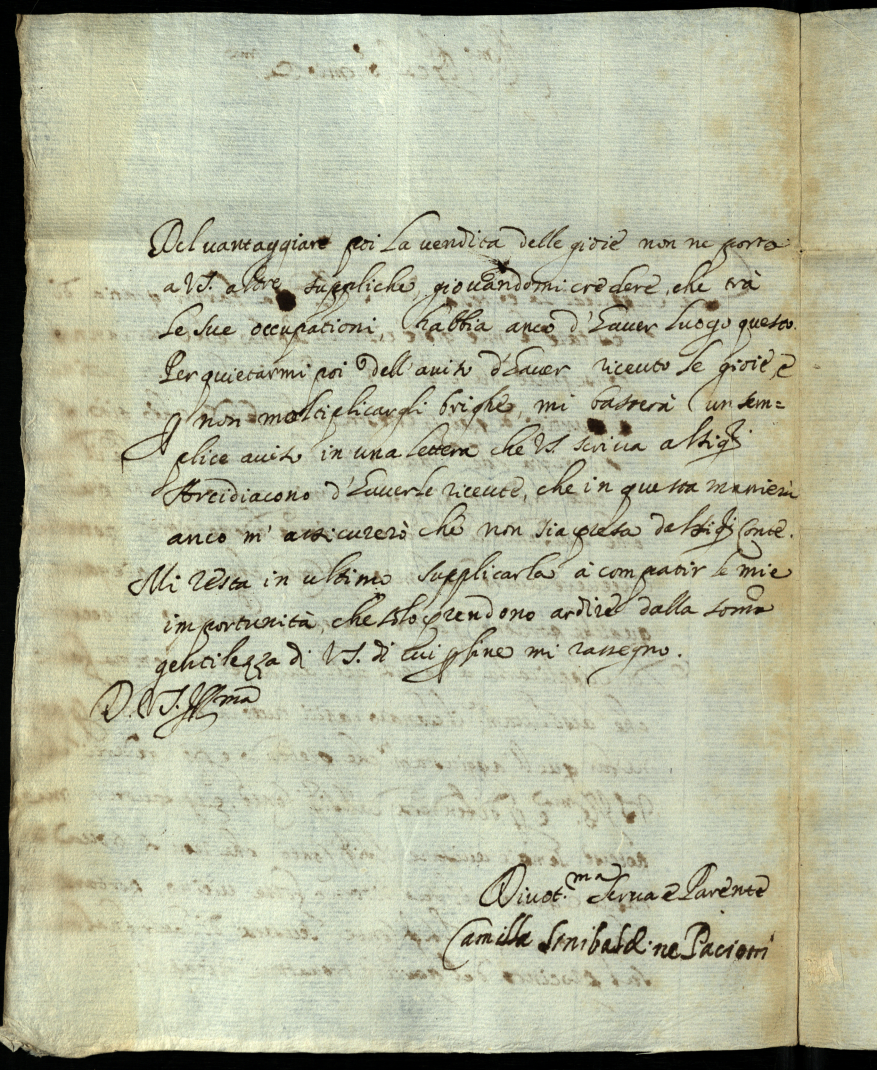 Del vantaggiare poi la vendita delle gioie non ne porto
a VS. altre suppliche, giovandomi credere, che trà
le sue occupationi, habbia anco d'hauer luogo questo.
Per quietarmi poi dell'auiso d'hauer riceuto le gioie, e
p non moltiplicargli brighe, mi basterà un sem=
plice auiso in una lettera che VS. scriua al Sig.r
Arcidiacono d'hauerle riceute, che in questa maniera
anco m'assicurerò che non sia presa dal Sig.r Conte.
Mi resta in ultimo supplicarla à compatir le mie
importunità, che solo prendono ardire dalla somma
gentilezza di VS. di cui p fine mi rassegno.
D. VS. Ill.ma
Diuot.ma Serua e Parente
Camilla Sinibaldi ne Paciotti